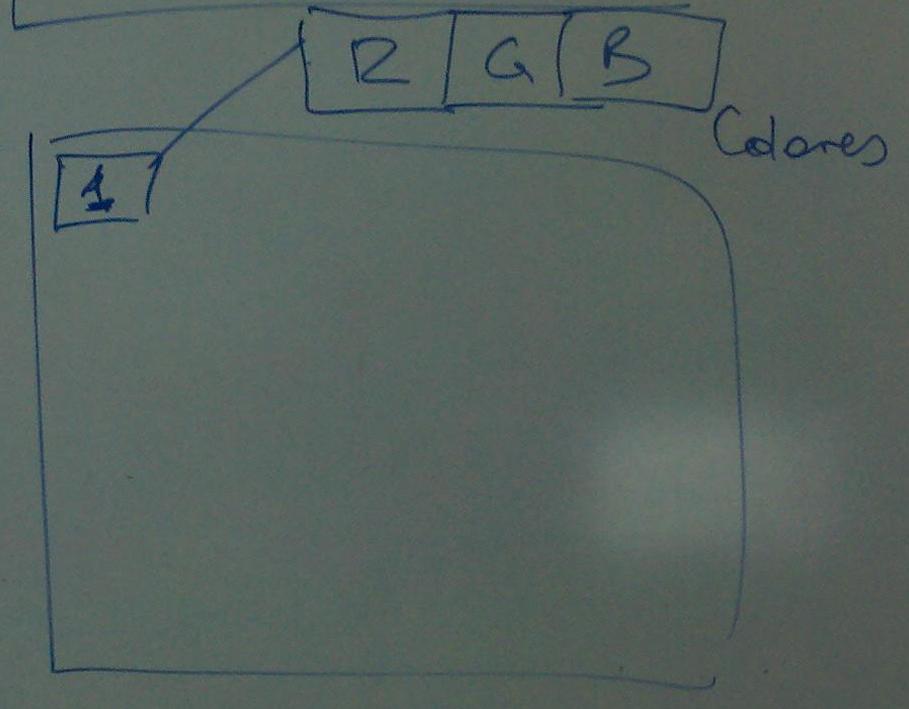 R G B
Colores
1